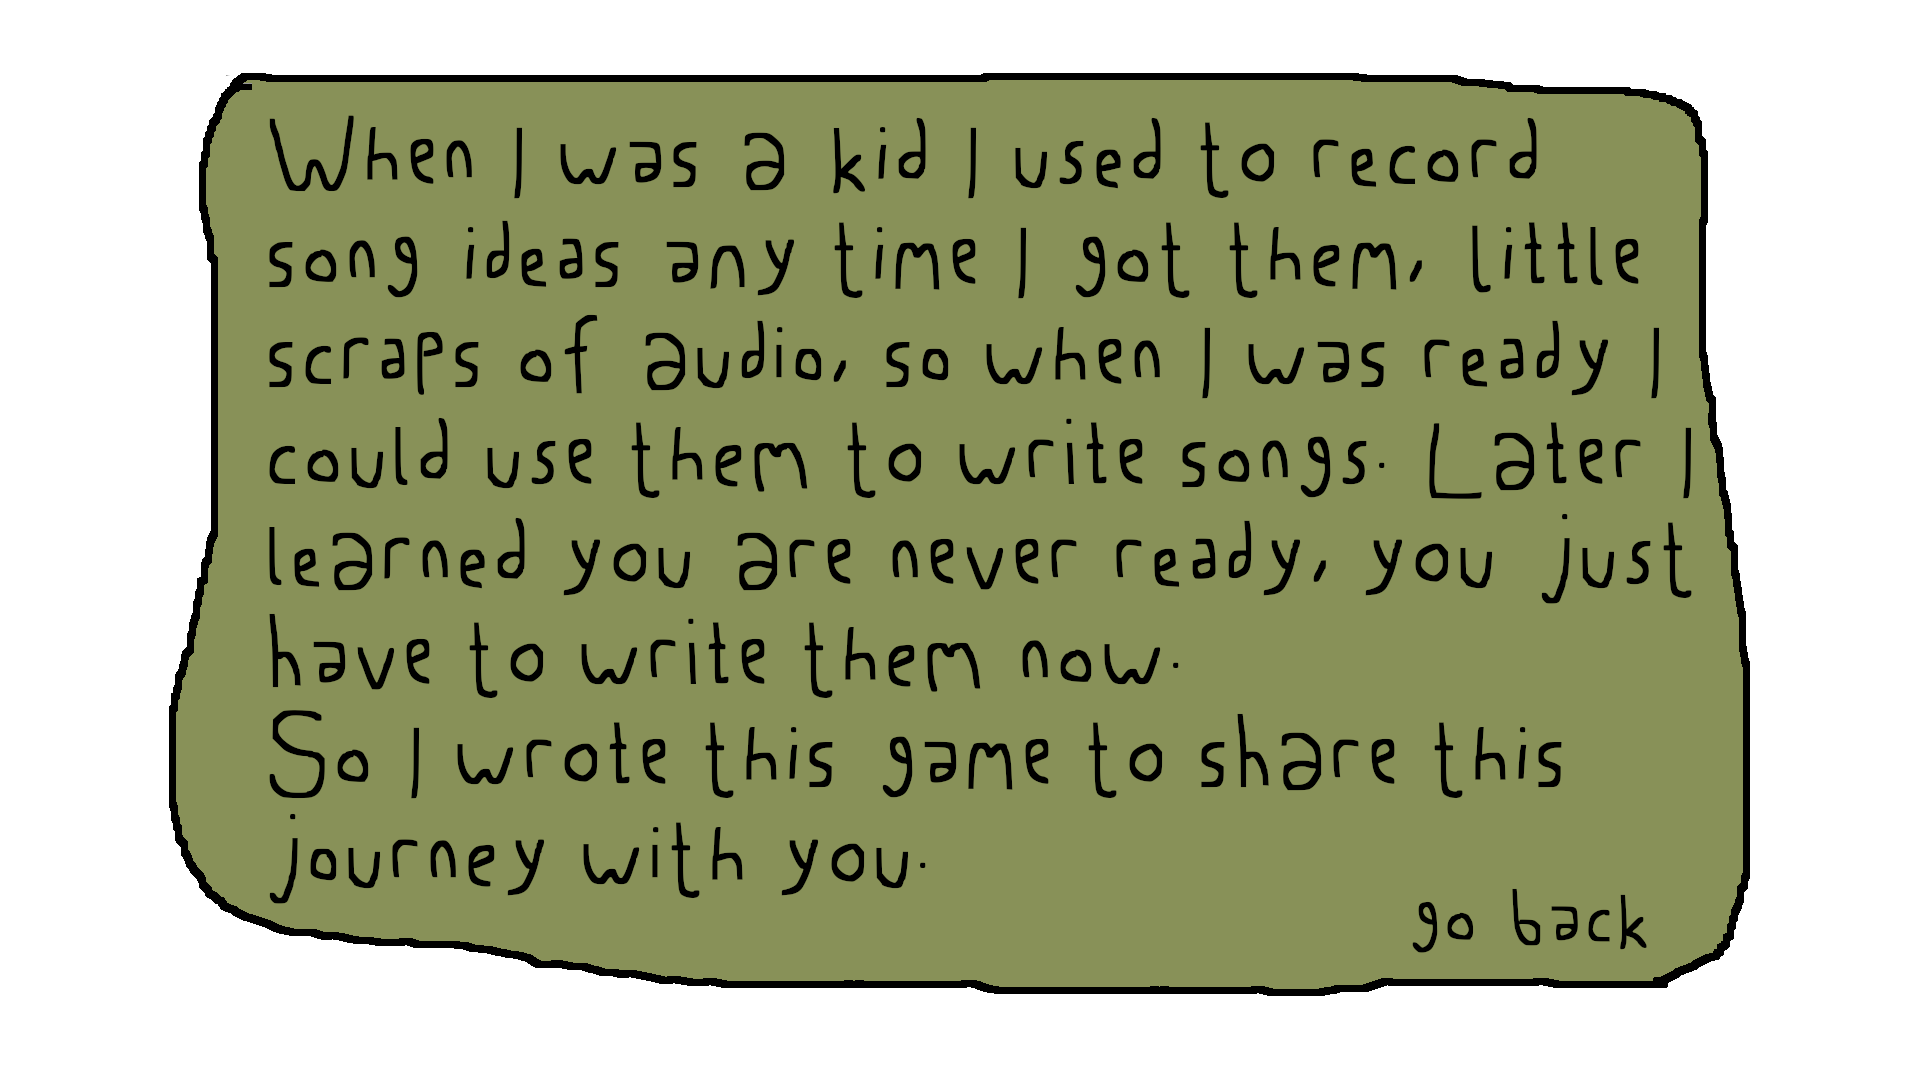 When I was a kid I used to record
song ideas any time I got them, little
scraps of audio, so when I was ready I
could use them to write songs. Later I
learned you are never ready, you just
have to write them now.
So I wrote this game to share this
journey with you.
go back